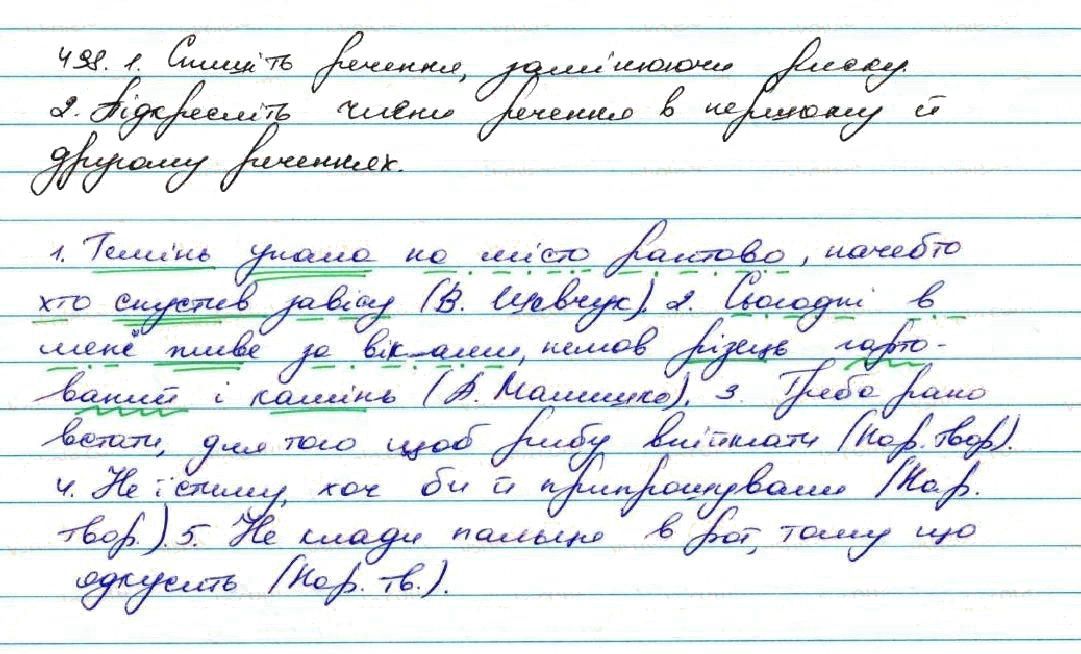 498. 1. Спишіть речення, замінюючи риску.
2. Підкресліть члени речення в першому й
другому реченнях.
1. Темінь упала на місто раптово, начебто
хто спустив завісу (В. Шевчук). 2. Сьогодні в
мене живе за вікнами, немов різець гарто-
ваний і камінь (А. Малишко). 3. Треба рано
встати, для того щоб рибу впіймати (Нар. твор).
4. Не їстиму, хоч би й припрошували (Нар.
твор.). 5. Не клади пальця в рот, тому що
одкусить (Нар. тв.).